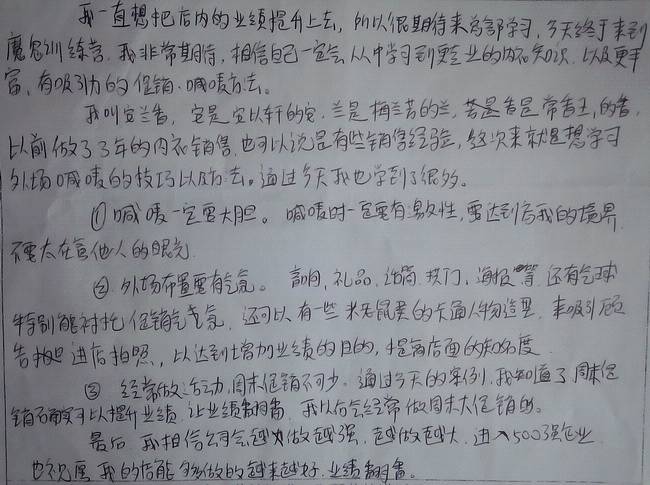 我一直想把店内的业绩提升上去，所以很期待来总部学习，今天终于来到
魔鬼训练营。我非常期待，相信自己一定会从中学习到更专业的内衣知识，以及更丰
富、有吸引力的促销、喊唛方法。
我叫安兰香，安是安以轩的安，兰是梅兰芳的兰，香是香常香玉，的香，
以前做了3年的内衣销售，也可以说是有些销售经验，这次来就是想学习
外场喊唛的技巧以及方法。通过今天我也学到了很多。
①喊唛一定要大胆。喊唛时一定要有激效性，要达到忘我的境界
不要太在意他人的眼光
②外场布置要有气氛。 礼品、话筒、拱门、海报等，还有气球
特别能衬托促销气气氛，还可以有一些米老鼠类的卡通人物造型，来吸引顾
进店拍照，以达到增加业绩的目的，提高店面的知名度
③ 经常做活动，周末促销不可少。通过今天的案例，我知道了周末促
销不可以提升业绩 让业绩翻番，我以后会经常做周末大促销的。
最后，我相信公司会越做越强，越做越大，进入500强企业
也祝愿我的店能够做的越来越好，业绩翻番。